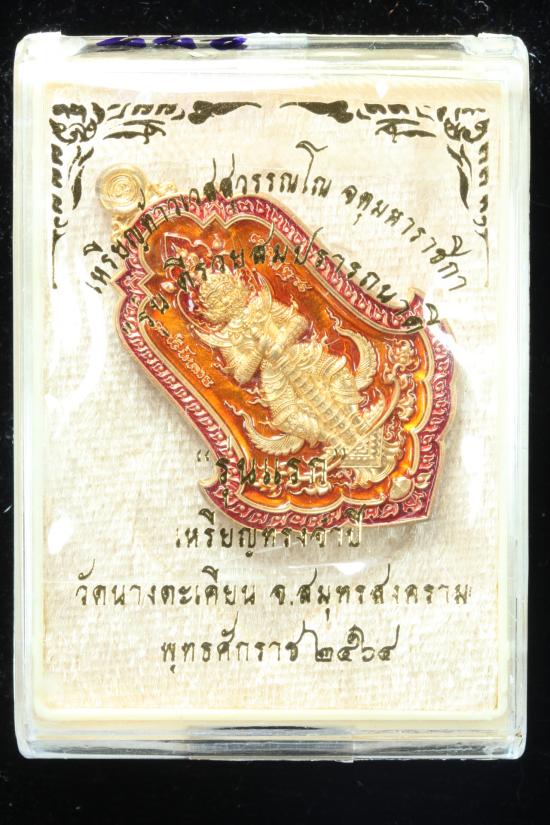 เหรียญท้าวเวสสุวรรณโณ จตุมหาราชิกา
รุ่น ที่รวยสมปรารถนาดี
“รุ่นแรก”
เหรียญทรงจำปี
วัดนางตะเคียน จ.สมุทรสงคราม
พุทธศักราช ๒๕๖๔